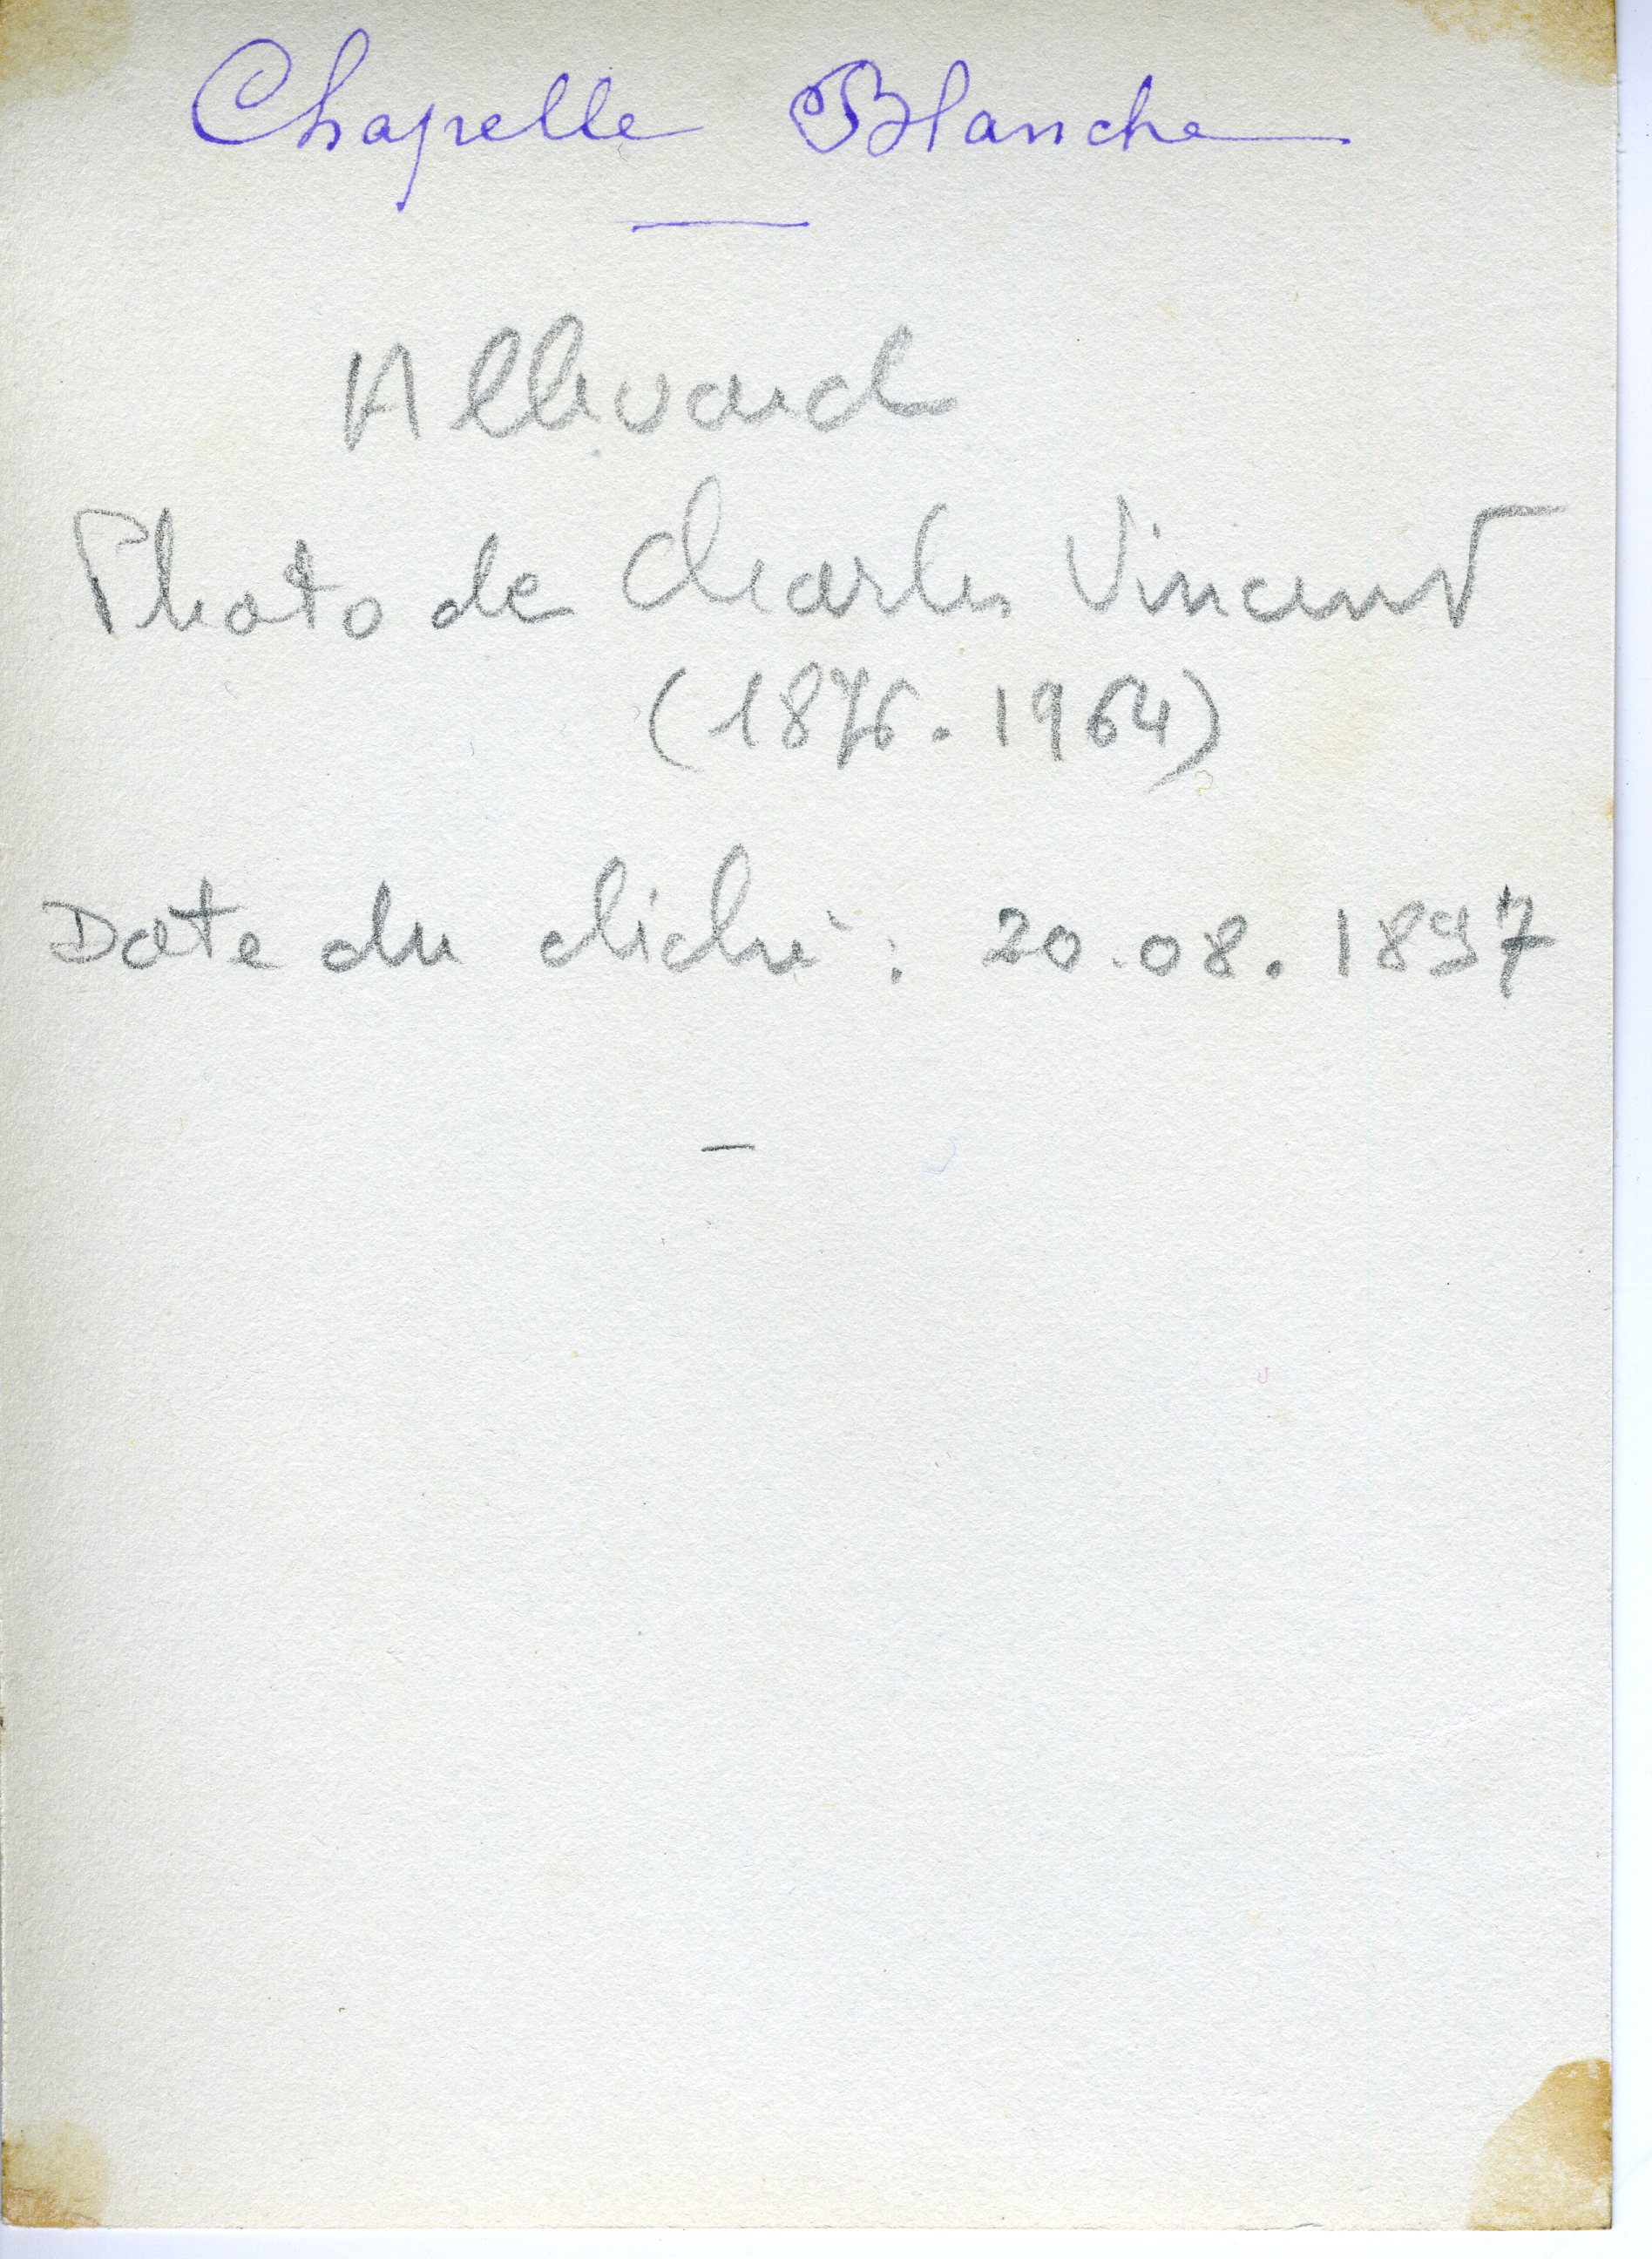 Chapelle Blanche
Allevard
Photo de Charles Vincent
(1876.1964)
Date du cliché : 20.08.1897